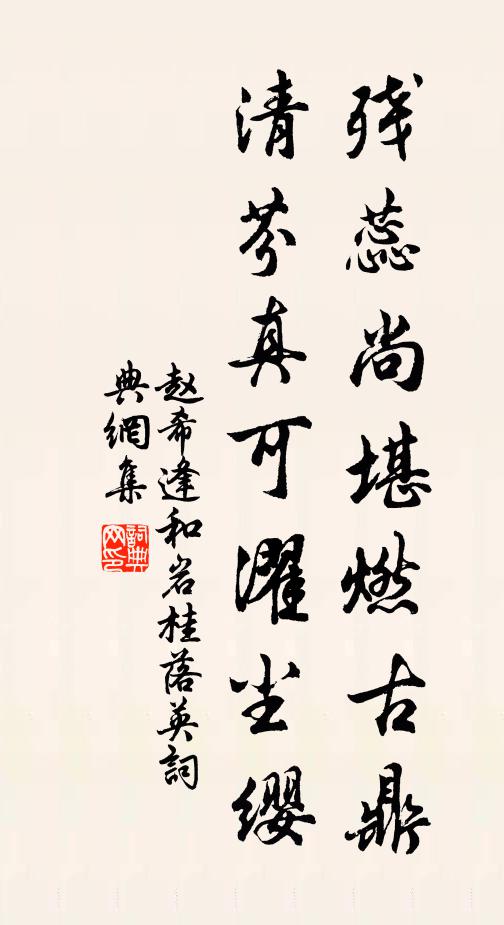 残蕊尚堪燃古鼎
清芬真可濯尘缨
赵希逢和岩桂落英詞
典網集
詞典
网印